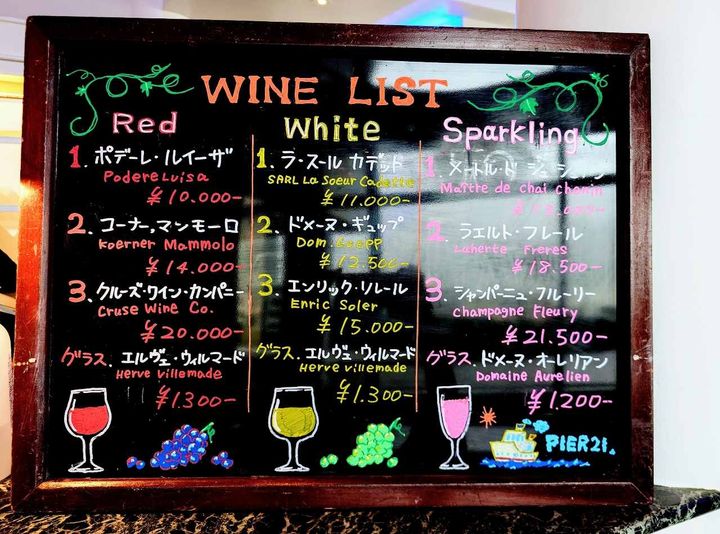 WINE LIST
Red
1. ポデーレ・ルイーザ
Podere Luisa
¥10.000-
2. コーナー,マンモーロ
Koerner Mammolo
¥14.000-
3. クルーズ・ワイン・カンパニー
Cruse Wine Co.
¥20.000-
グラス. エルヴェ・ヴィルマード
Herve villemade
¥1.300-
White
1. ラ・スール カデット
SARL La Soeur Cadette
¥11.000-
2. ドメーヌ・ギュップ
Dom.
¥12.500-
3. エンリック・ソレール
Enric Soler
¥15.000-
グラス. エルヴェ・ヴィルマード
Herve villemade
¥1.300-
Sparkling
1. メートル・ド
Maître de chai chemin
2. ラエルト・フレール
Laherte Freres
¥18.500-
3. シャンパーニュ・フルーリー
Champagne Fleury
¥21.500-
グラス. ドメーヌ・オーレリアン
Domaine Aurelien
¥1.200-
PIER21.